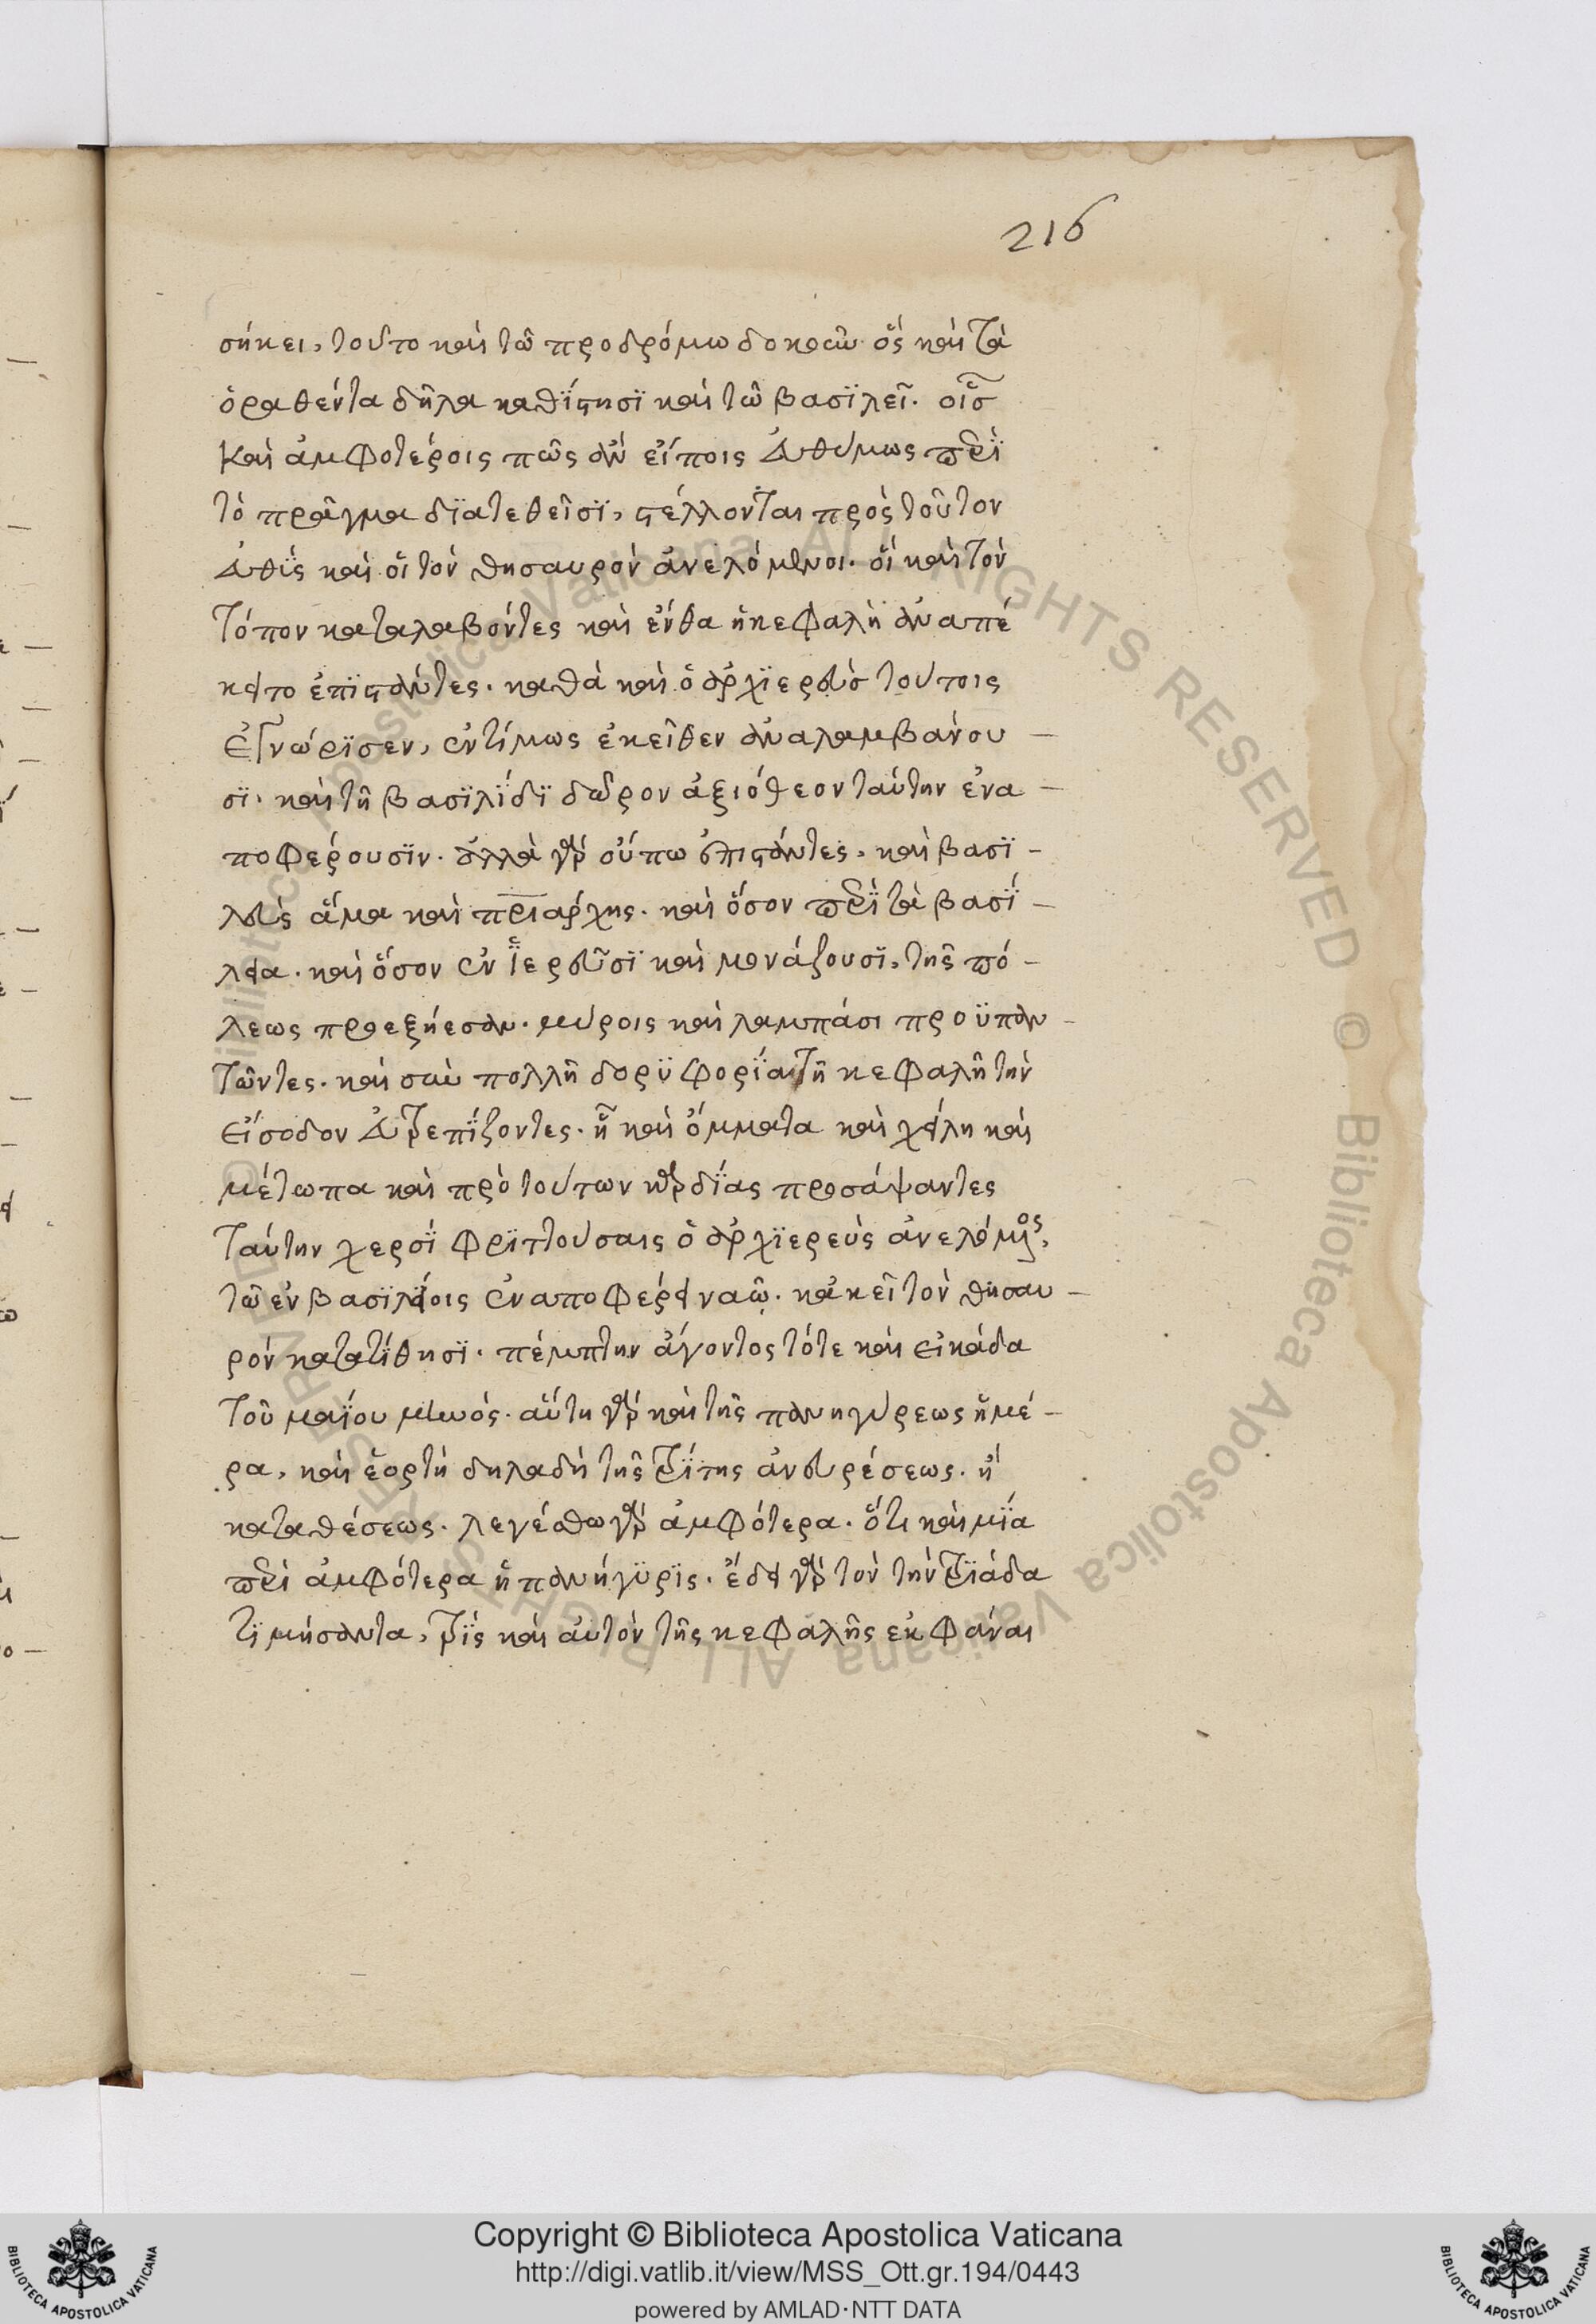 216
σήκει, τούτο καὶ τῶ προδρόμω δοκοῦν. ὃς καὶ τὰ
ὁραθέντα δῆλα καθΐστησϊ καὶ τῶ βασϊλεῖ. οἷς
Καὶ ἀμφοτέροις πῶς ἂν εἴποις εὐθύμως περὶ
τὸ πρᾶγμα δϊατεθεῖσϊ, στέλλονται πρὸς τοῦτον
εὐθὺς καὶ οἱ τὸν θησαυρὸν ἀνελόμενοι. οἳ καὶ τὸν
τόπον καταλαβόντες καὶ ἔνθα ἡ κεφαλὴ ἀναπέ
κειτο ἐπϊστάντες. καθὰ καὶ ὁ ἀρχϊερεὺς τούτοις
ἐγνώρϊσεν, ἐντίμως ἐκεῖθεν ἀναλαμβάνου –
σϊ. καὶ τῆ βασϊλΐδϊ δῶρον ἀξιόθεον ταύτην ἐνα –
ποφέρουσϊν. ἀλλὰ γὰρ οὔπω ἐπιστάντες, καὶ βασϊ –
λεὺς ἅμα καὶ πριάρχης. καὶ ὅσον περὶ τὰ βασΐ –
λεια. καὶ ὅσον ἐν ἱερεῦσϊ καὶ μονάζουσϊ, τῆς πό –
λεως προεξήεσαν. μύροις καὶ λαμπάσι προϋπαν –
τῶντες. καὶ σὺν πολλῆ δορϋφορΐα τῆ κεφαλῆ τὴν
εἴσοδον εὐτρεπΐζοντες. ἧ καὶ ὄμματα καὶ χείλη καὶ
μέτωπα καὶ πρὸ τούτων καρδΐας προσάψαντες
ταύτην χερσϊ φρϊττούσαις ὁ ἀρχϊερεὺς ἀνελόμενος,
τῶ ἐν βασϊλείοις ἐναποφέρει ναῶ. κἀκεῖ τὸν θησαυ –
ρὸν κατατίθησϊ. πέμπτην ἄγοντος τότε καὶ εἰκάδα
τοῦ μαΐου μηνός. αὕτη γὰρ καὶ τῆς πανηγύρεως ἡμέ –
ρα, καὶ ἑορτὴ δηλαδὴ τῆς τρΐτης ἀνευρέσεως. ἢ
καταθέσεως. λεγέσθω γὰρ ἀμφότερα. ὅτι καὶ μΐα
περὶ ἀμφότερα ἡ πανήγϋρϊς. ἔδει γὰρ τὸν τὴν τρϊάδα
τϊμήσαντα, τρϊς καὶ αὐτὸν τῆς κεφαλῆς ἐκφάναι
Copyright © Biblioteca Apostolica Vaticana
http://digi.vatlib.it/view/MSS_Ott.gr.194/0443
powered by AMLAD·NTT DATA
BIBLIOTECA APOSTOLICA VATICANA
BIBLIOTECA APOSTOLICA VATICANA
© Biblioteca Apostolica Vaticana ALL RIGHTS RESERVED © Biblioteca Apostolica Vaticana ALL RIGHTS RESERVED